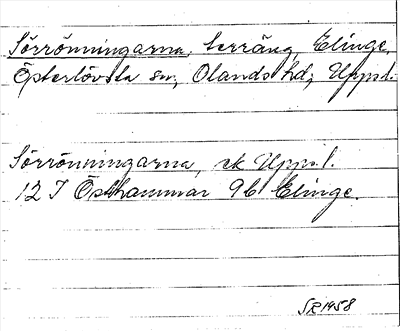 Sörrönningarna, terräng, Elinge,
Österlövsta sn, Olands hd, Uppl.
Sörrönningarna, ek Uppl.
12 I Östhammar 9b Elinge.
SR 1958